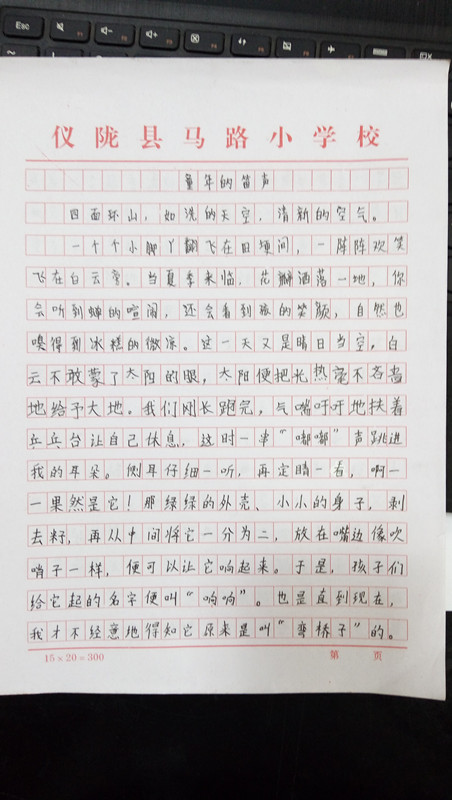 仪陇县马路小学校
童年的笛声
四面环山，如洗的天空，清新的空气。
一个个小脚丫翻飞在田埂间，一阵阵欢笑
飞在白云旁。当夏季来临，花瓣洒落一地，你
会听到蝉的喧闹，还会看到孩的笑颜，自然也
嗅得到冰糕的微凉。这一天又是晴日当空，白
云不敢蒙了太阳的眼，太阳便把光热毫不吝啬
地给予大地。我们刚长跑完，气喘吁吁地扶着
乒乓台让自己休息，这时一串“嘟嘟”声跳进
我的耳朵。侧耳仔细一听，再定睛一看，啊一
一果然是它！那绿绿的外壳、小小的身子，剥
去籽，再从中间将它一分为二，放在嘴边像吹
哨子一样，便可以让它响起来。于是，孩子们
给它起的名字便叫“响响”。也是直到现在，
我才不经意地得知它原来是叫“弯桥子”的。
15×20=300 第 页